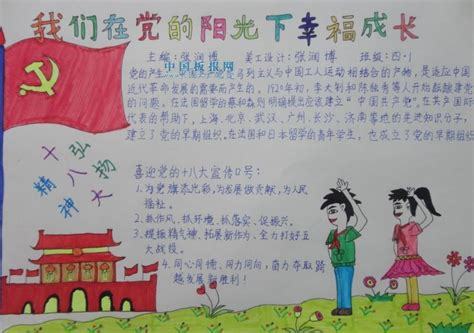 我们在党的阳光下幸福成长
主编：张润博 美工设计：张润博 班级：四·1
中国板报网
党的产生 中国共产党是马列主义与中国工人运动相结合的产物，是适应中国
近代革命发展的需要而产生的。1920年初，李大钊和陈独秀等人开始酝酿建党
的问题。在法国留学的蔡和森则明确提出应该建立“中国共产党”。在共产国际
代表的帮助下，上海、北京、武汉、广州、长沙、济南等地的先进知识分子，
建立了党的早期组织。在法国和日本留学的青年学生，也成立了党的早期组织。
弘扬
十八大
精神
喜迎党的十八大宣传口号：
1.为党旗添光彩，为发展做贡献，为人民
福祉。
2.抓作风、抓环境、抓落实、促振兴。
3.提振精气神、拓展新作为、全力打好五
大战役。
4.同心同德、同力同向，奋力夺取跨
越发展新胜利！